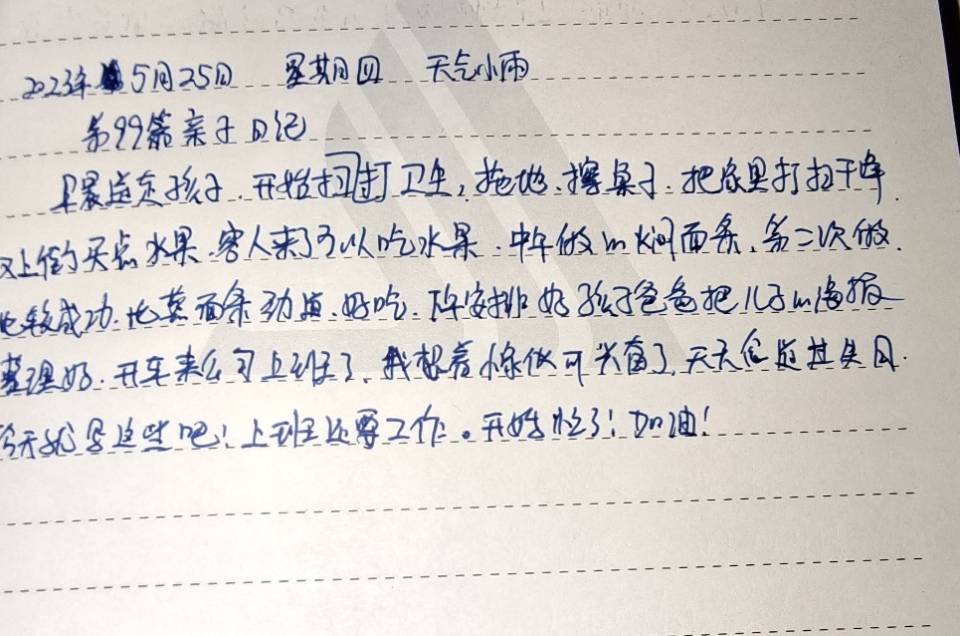 2023年5月25日 星期四 天气小雨
第99篇亲子日记
早晨送完孩子.开始打扫卫生,拖地.擦桌子.把家里打扫干净.
又上街买点水果.客人来了可以吃水果.中午做的焖面条.第二次做.
比较成功.比蒸面条劲道.好吃.下午安排好孩子爸爸把儿子的海报
整理好.开车来公司上班了.我想着
今天就写这些吧!上班还要工作。开始忙了!加油!